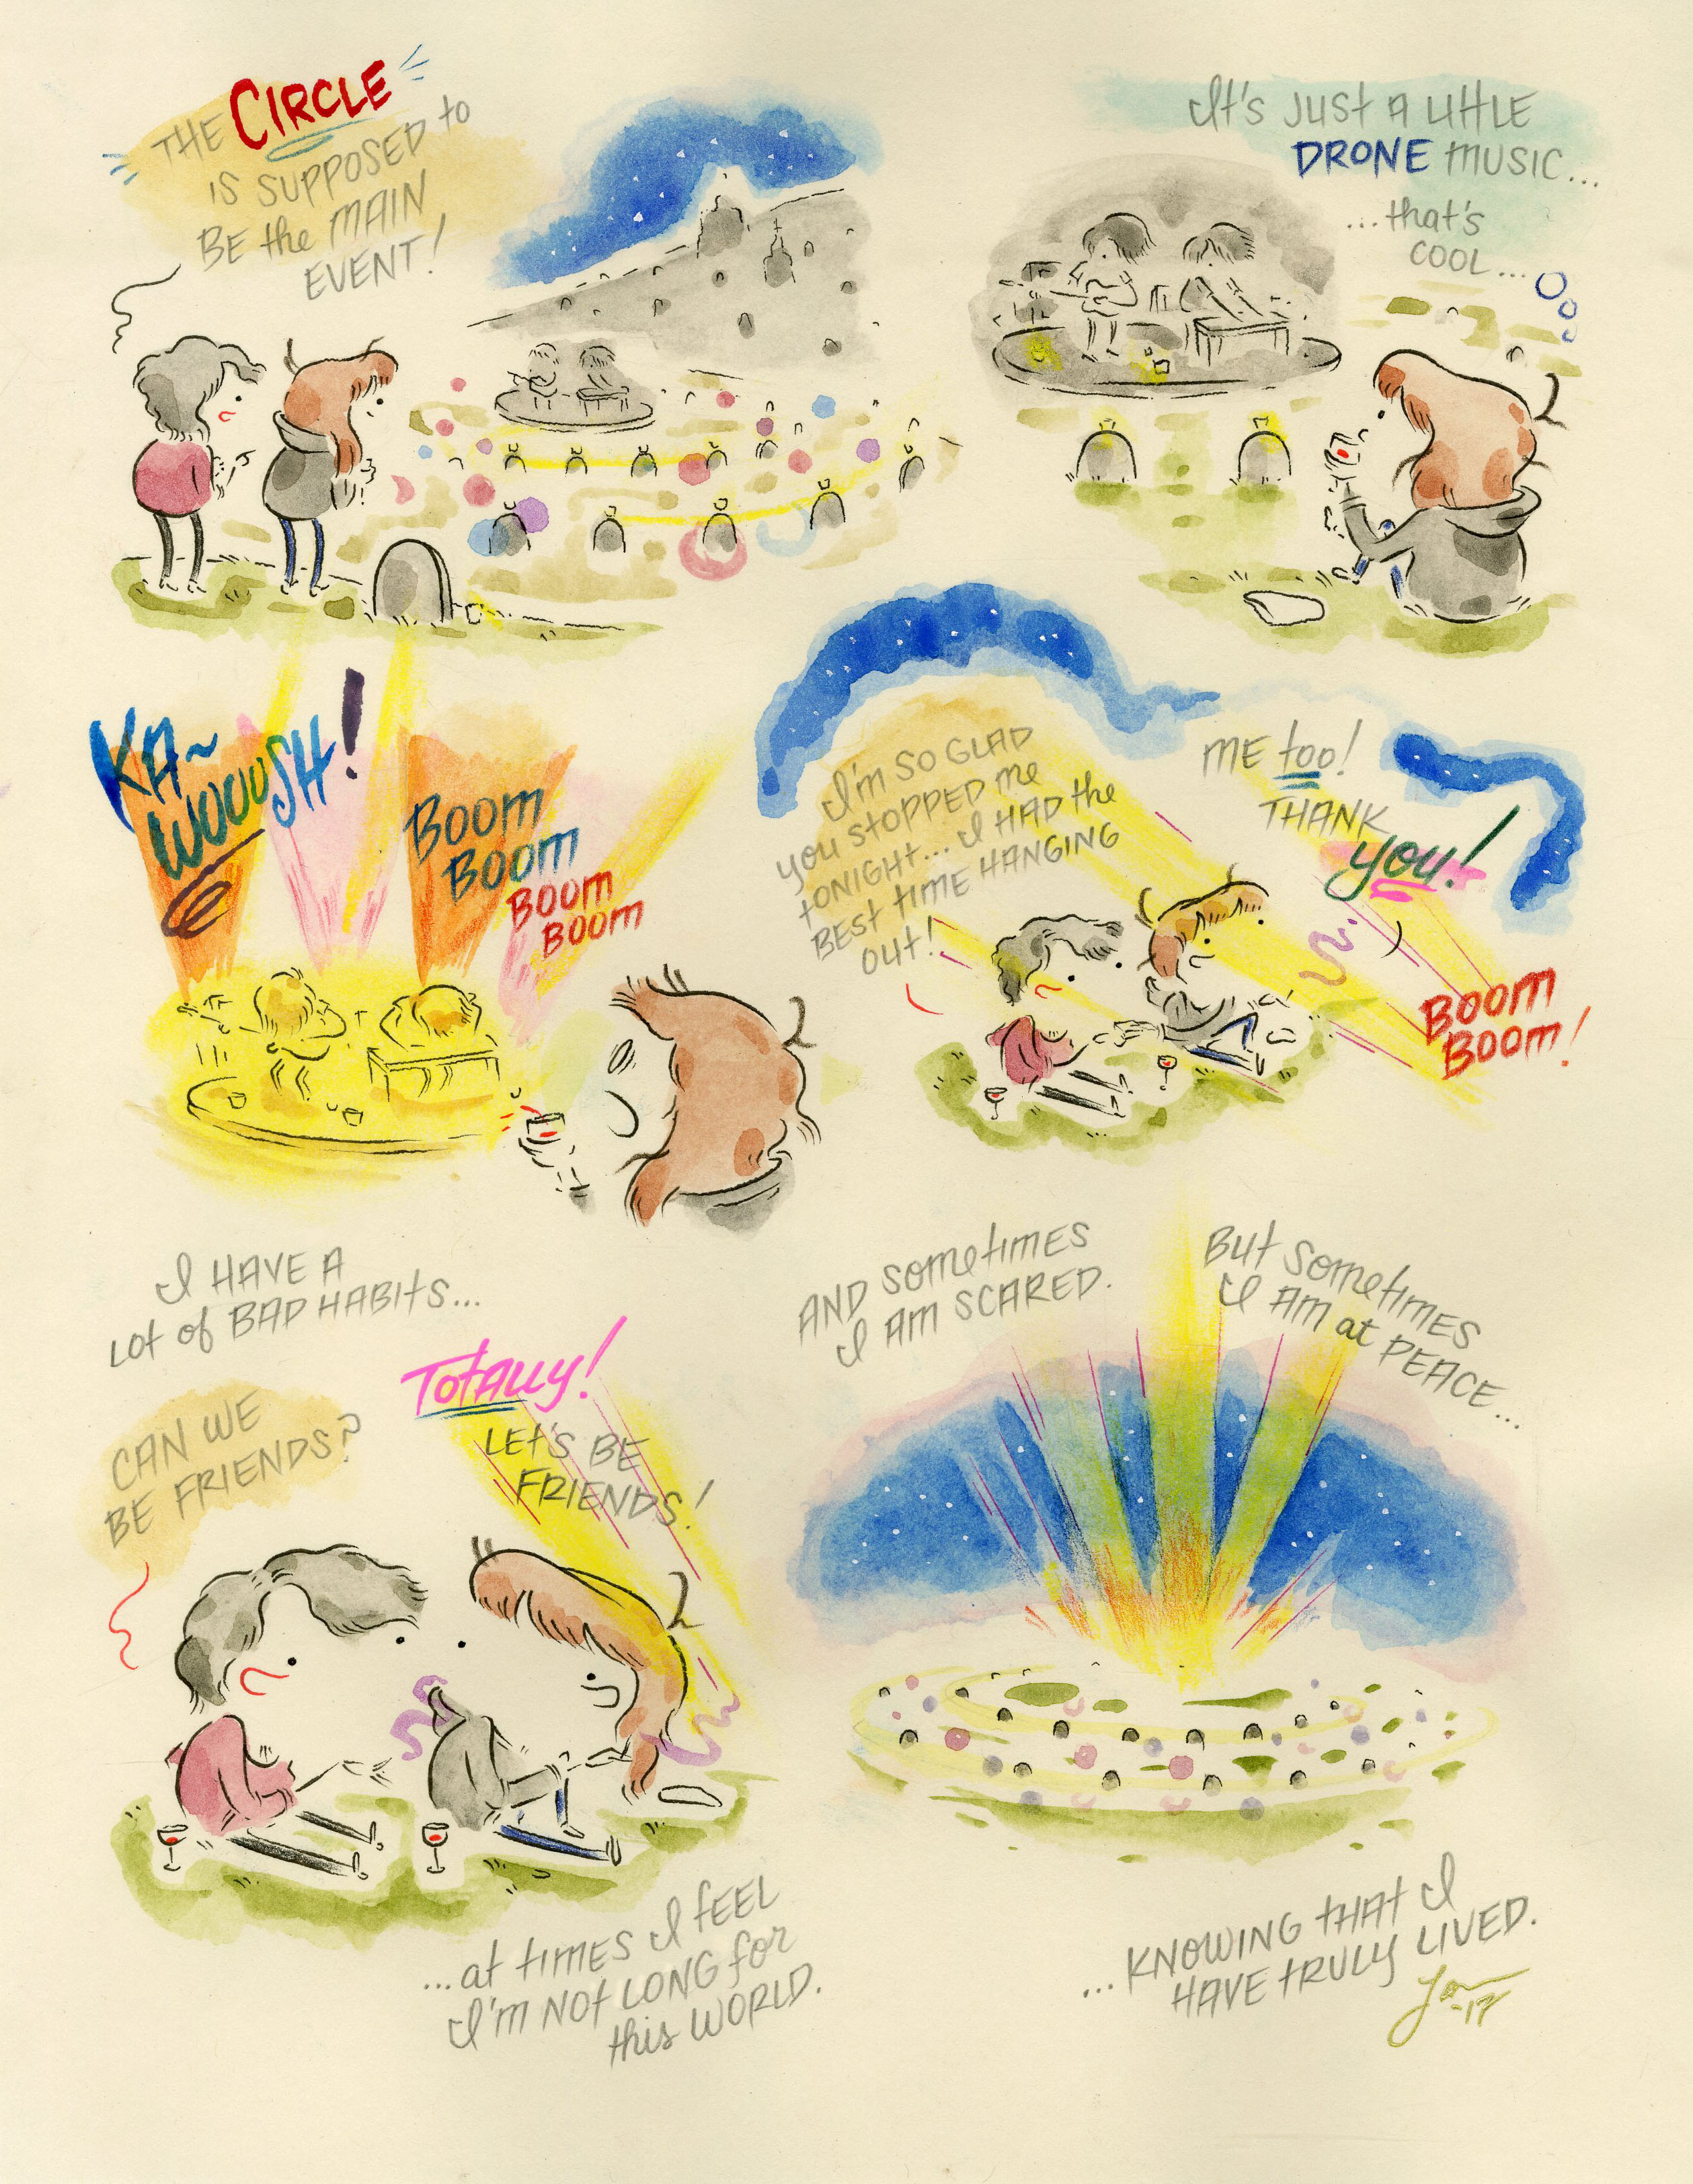 THE CIRCLE
IS SUPPOSED to
BE the MAIN
EVENT!
It's JUST A LittLE
DRONE MUSIC...
...that's
COOL...
KA~
WOOOSH!
BOOM
BOOM
BOOM
BOOM
I'm SO GLAD
you StOPPED me
tONIGHt... I HAD the
BESt tIME HANGING
OUt!
ME too!
THANK
you!
BOOM
BOOM!
I HAVE A
LOt of BAD HABItS...
CAN WE
BE FRIENDS?
TOtALLy!
LEt'S BE
FRIENDS!
...at tIMES I fEEL
I'm NOt LONG for
this WORLD.
AND SometIMES
I Am SCARED.
BUt SometIMES
I Am at PEACE...
...KNOWING tHAt I
HAVE tRULY LIVED.
-17